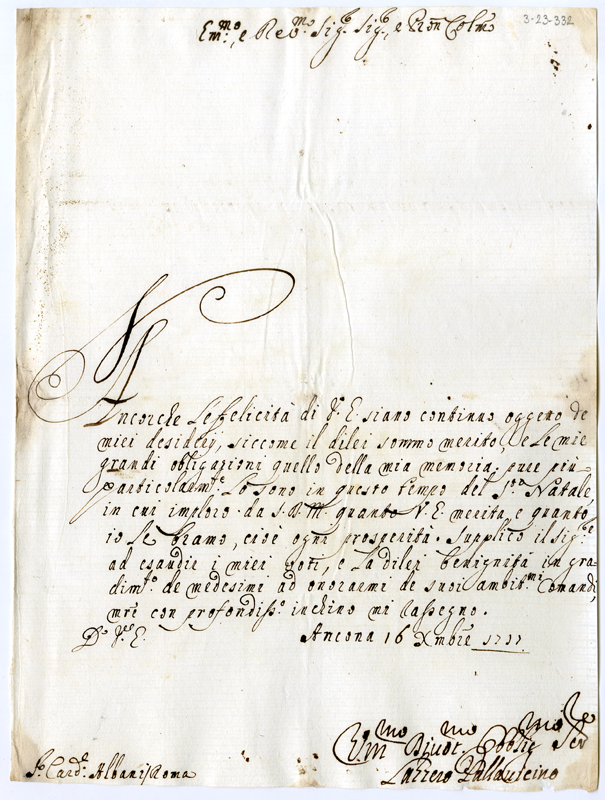 3-23-332
Em.mo, e Rev.mo Sig.r Sig.r, e Pron Colmo
Ancorche le felicità di V. E. siano continuo oggeto de
miei desiderj, siccome il dilei sommo merito, e le mie
grandi obligazioni quello della mia memoria; pure più
particolarm.te lo sono in questo tempo del S.to Natale,
in cui imploro da S. D. M. quanto V. E. merita, e quanto
io le bramo, cioè ogni prosperità. Supplico il Sig.re
ad esaudir i miei voti, e la dilei benignità in gra-
dim.to de medesimi ad onorarmi de suoi ambit.mi Comandi,
mre con profondiss.o inchino mi rassegno.
D. V.ra E. Ancona 16 Xmbre
S.r Card.e Albani Roma
Um.mo Divot.mo Obblig.mo Ser.re
Pallavicino